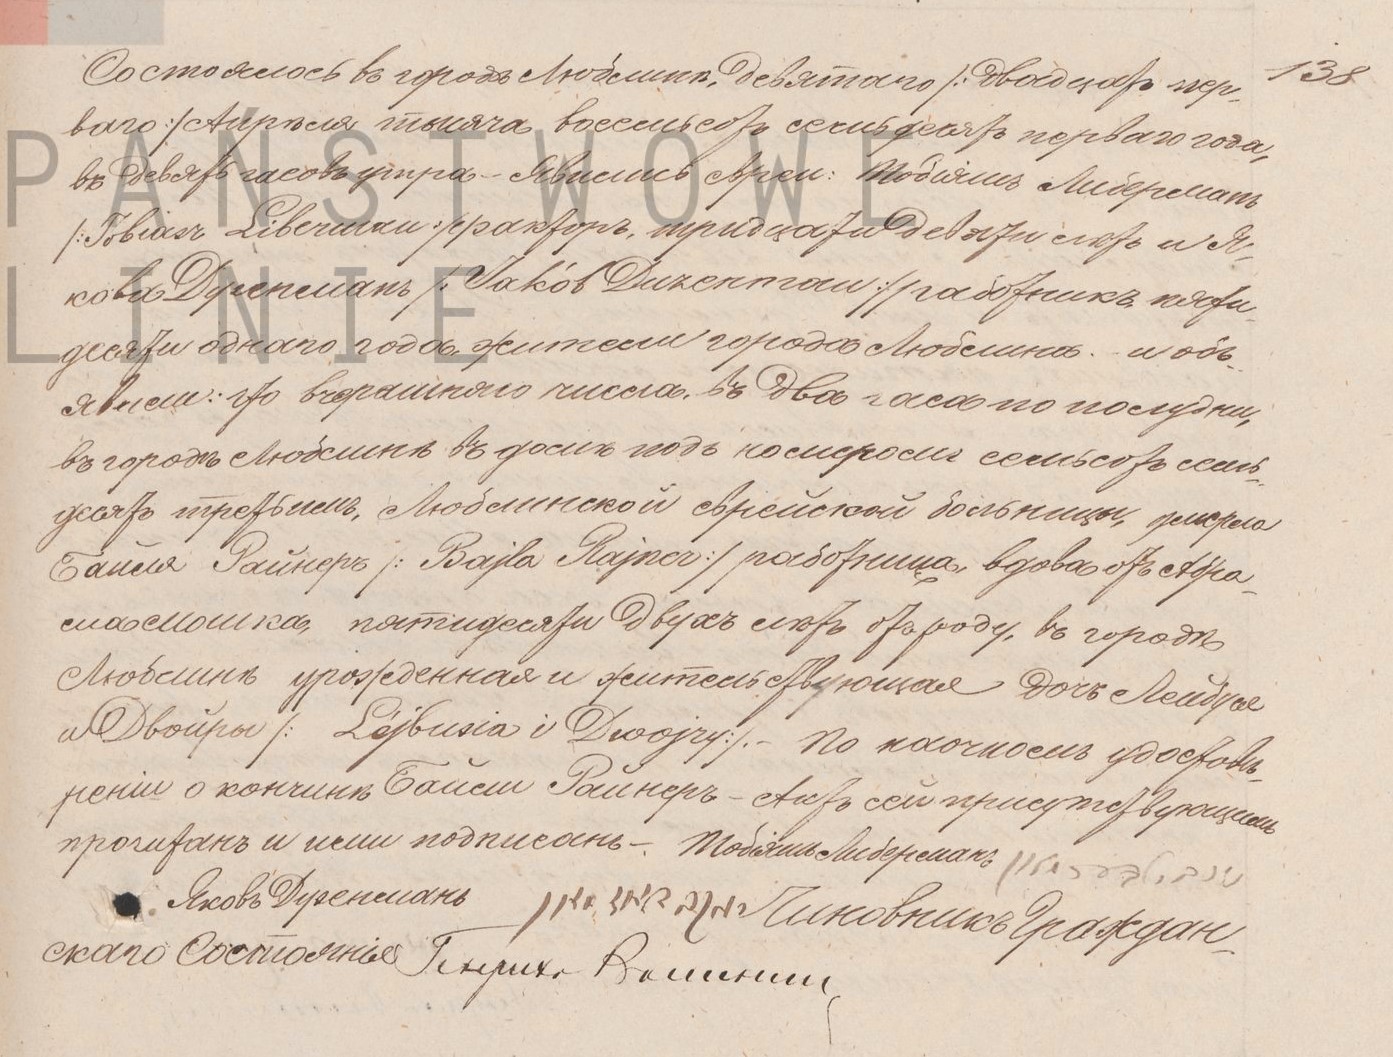 138
Состоялось въ городѣ Люблинѣ, девятаго /: двадцать пер-
ваго :/ Апрѣля тысяча восемьсотъ семьдесятъ перваго года,
въ девять часовъ утра – Явились Евреи: Тобіяшъ Либерманъ
/: Tobiasz Liberman :/ факторъ, тридцати девяти лѣтъ и Я-
кова Дуженманъ /: Jakób :/ работникъ пяти-
десяти однаго года, жители города Люблина. – и объ-
явили: что вчерашняго числа, въ два часа по полудни,
въ городѣ Люблинѣ въ домѣ подъ номеромъ семьсотъ семь-
десятъ третьимъ, Люблинской еврейской больницы, умерла
Байля Райнеръ /: Bajla Rajner :/ работница, вдова отъ Абра-
ма Мошка, пятидесяти двухъ лѣтъ отъ роду, въ городѣ
Люблинѣ урожденная и жительствующая дочь Лейбуся
и Двойры /: Lejbusia i Dwojry :/. – По наочномъ удостовѣ-
реніи о кончинѣ Байли Райнеръ – Актъ сей присутствующимъ
прочитанъ и ими подписанъ –. Тобіяшъ Либерманъ
Яковъ Дуженманъ Чиновникъ Граждан-
скаго Состоянія Генрихъ
PAŃSTWOWE
LINIE